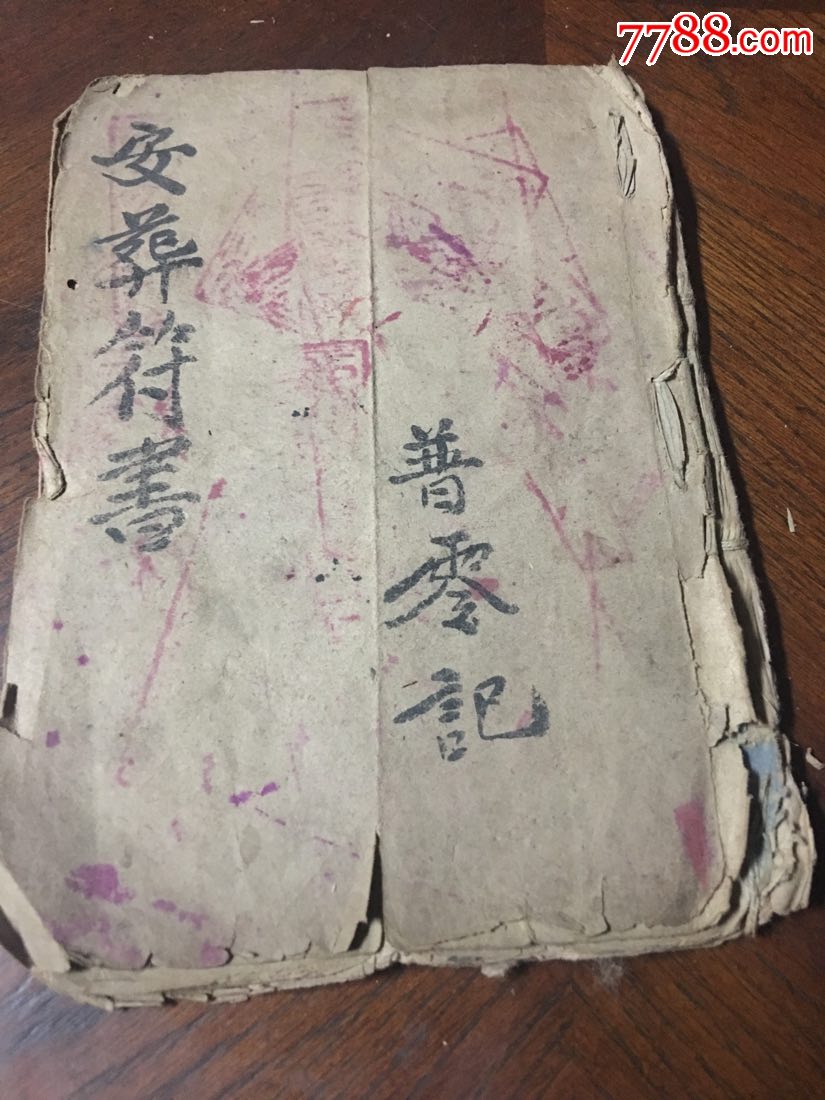 7788.com
安葬符書
普零記